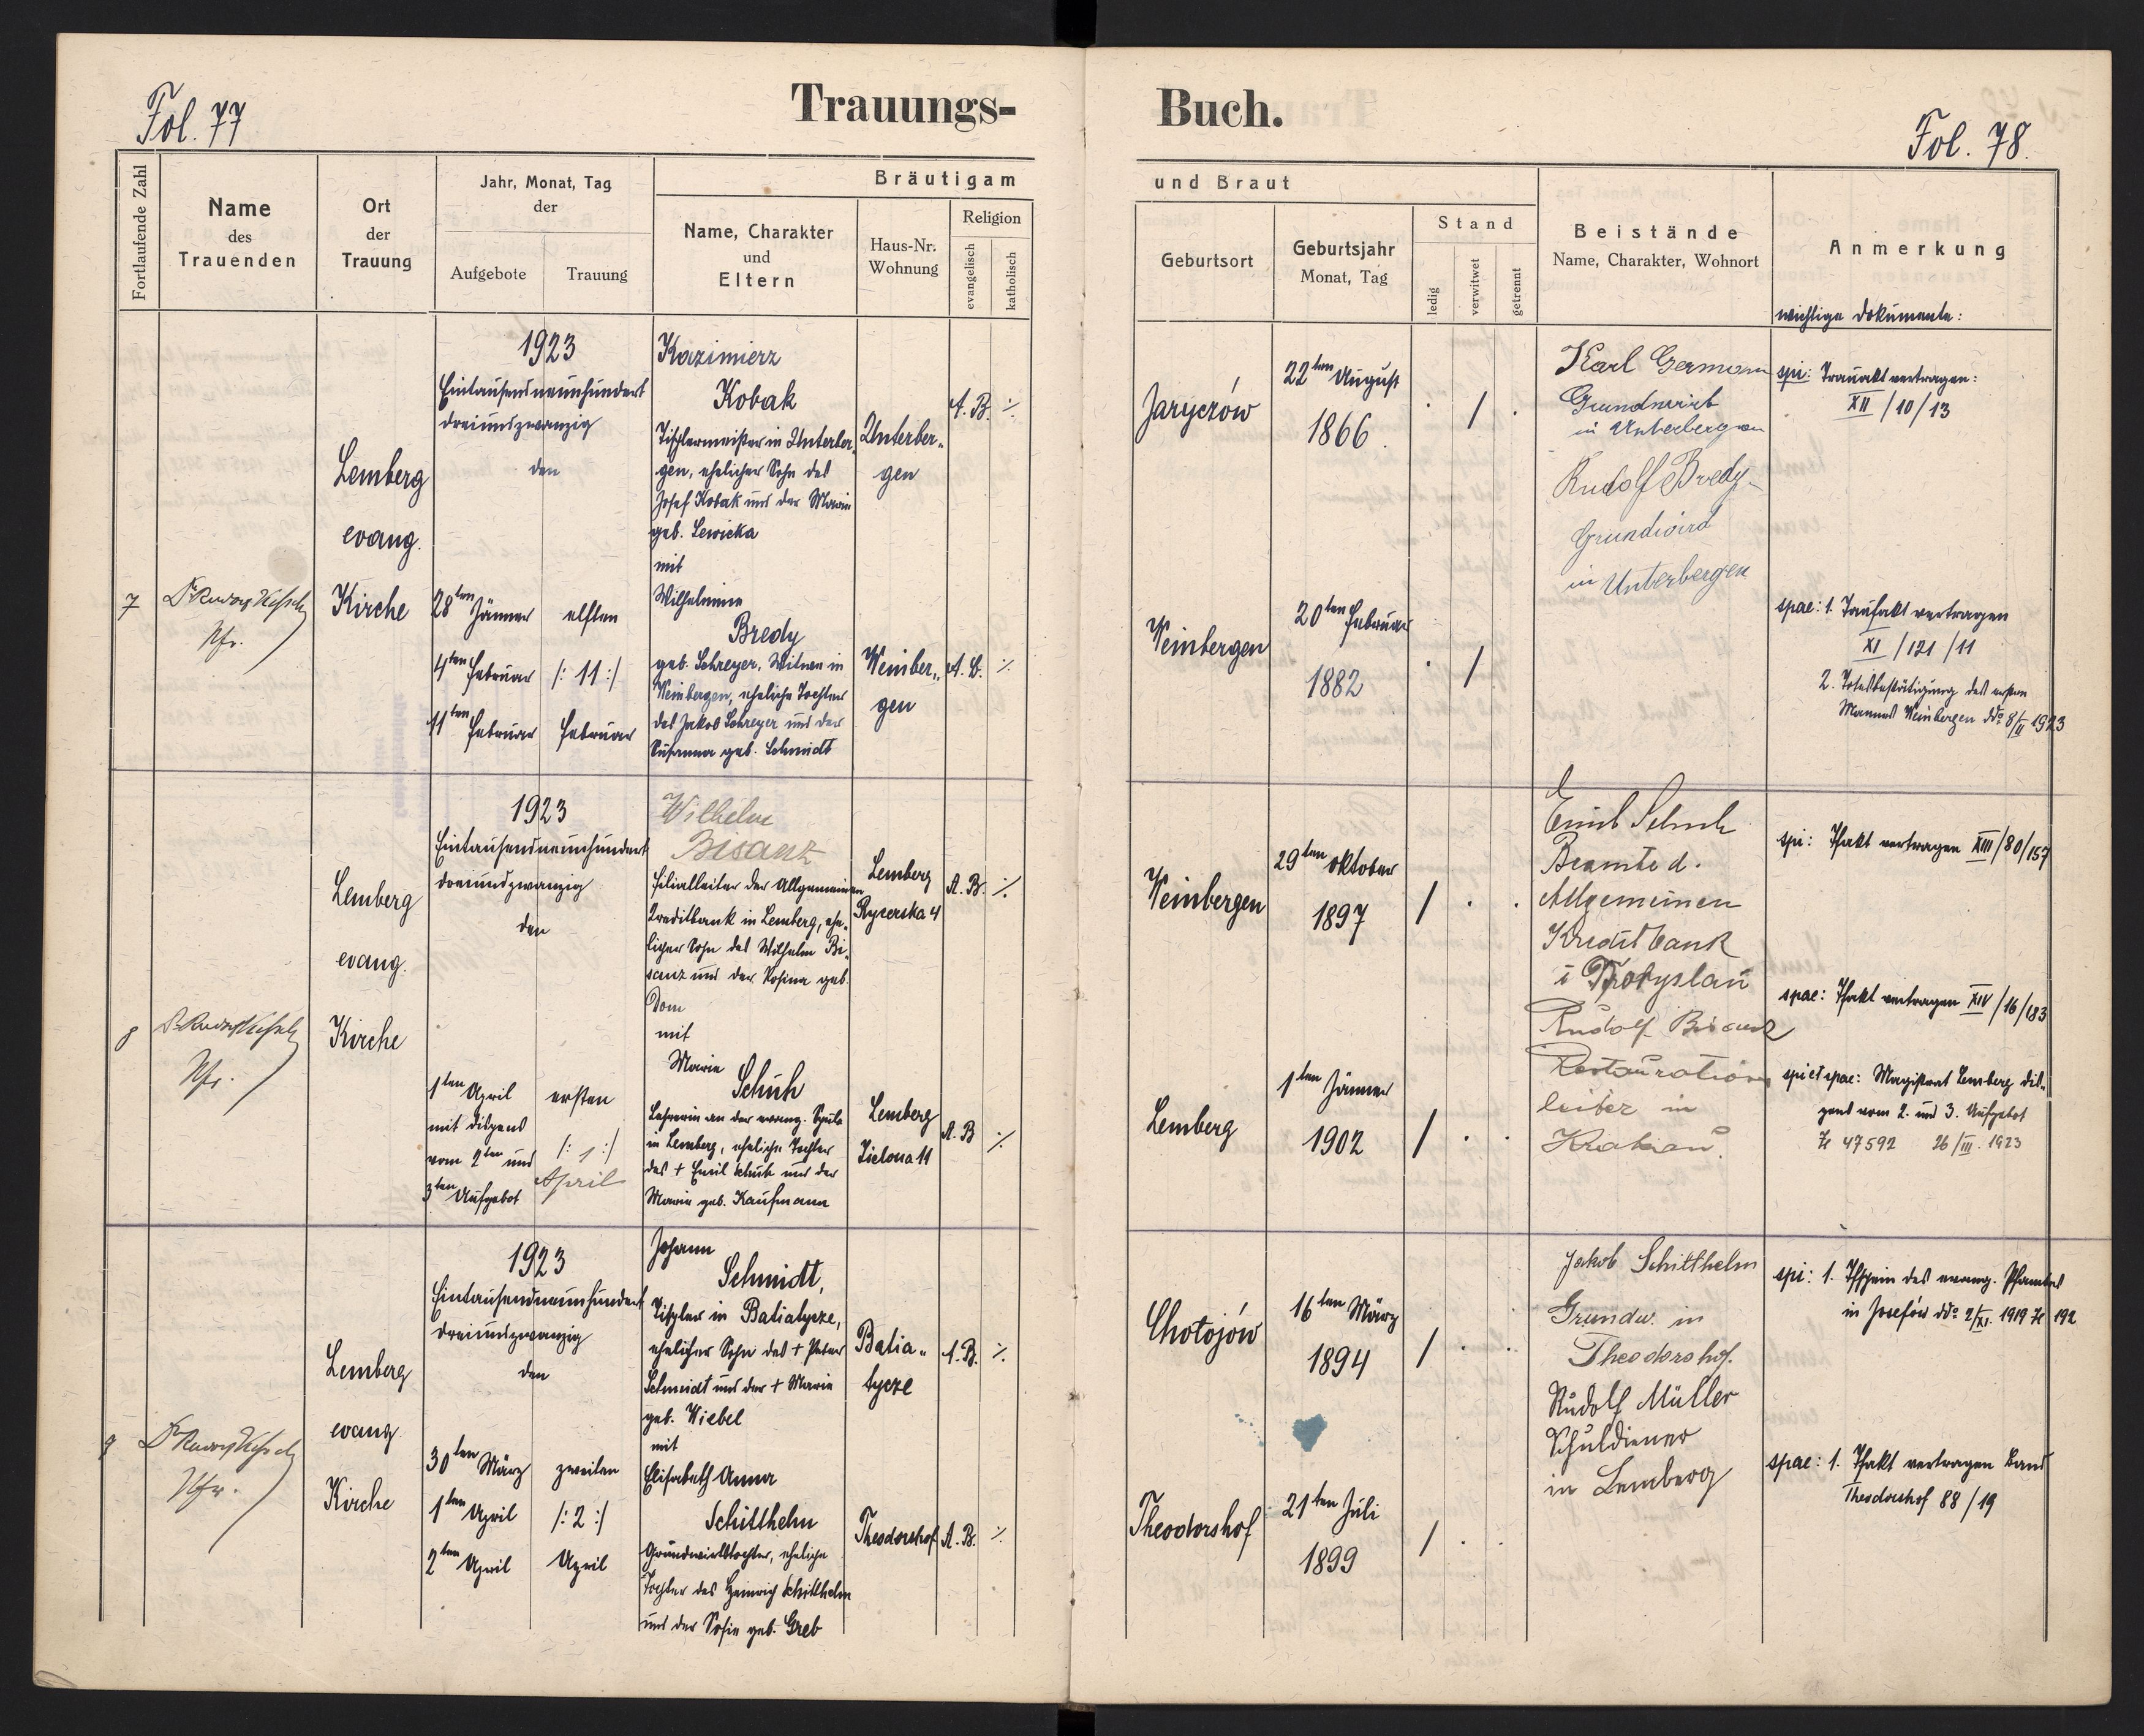 Fol. 77
Trauungs-
Fortlaufende Zahl
Name
des
Trauenden
Ort
der
Trauung
Jahr, Monat, Tag
der
Aufgebote
Trauung
Bräutigam
Name, Charakter
und
Eltern
Haus-Nr.
Wohnung
Religion
evangelisch
katholisch
7
Pfr.
Lemberg
evang.
Kirche
1923
Eintausendneunhundert
dreiundzwanzig
den
28ten Jänner
4ten Februar
11ten Februar
elften
/: 11 :/
Februar
Kazimierz
Kobak
Tischlermeister in Unterber„
gen, ehelicher Sohn des
Josef Kobak und der Maria
geb. Lewicka
mit
Wilhelmine
Bredy
geb. Schreyer, Witwe in
Weinbergen, eheliche Tochter
des Jakob Schreyer und der
Susanna geb. Schmidt
Unterber„
gen
Weinber„
gen
A. B. ⁒
A. B. ⁒
8
Pfr.
Lemberg
evang.
Kirche
1923
Eintausendneunhundert
dreiundzwanzig
den
1ten April
mit Dispens
vom 2ten und
3ten Aufgebot
ersten
/: 1 :/
April
Wilhelm
Bisanz
Filialleiter der Allgemeinen
Kreditbank in Lemberg, ehe„
licher Sohn des Wilhelm Bi„
sanz und der Rosina geb.
Dom
mit
Maria
Schuh
Lehrerin an der evang. Schule
in Lemberg, eheliche Tochter
des + Emil Schuh und der
Maria geb. Kaufmann
Lemberg
Rycerska 4
Lemberg
Zielona 11
A. B. ⁒
A. B ⁒
9
Pfr.
Lemberg
evang.
Kirche
1923
Eintausendneunhundert
dreiundzwanzig
den
30ten März
1ten April
2ten April
zweiten
/: 2 :/
April
Johann
Schmidt,
Tischler in Batiatycze,
ehelicher Sohn des + Peter
Schmidt und der + Maria
geb. Wiebel
mit
Elisabeth Anna
Schitthelm
Grundwirtstochter, eheliche
Tochter des Heinrich Schitthelm
und der Sofie geb. Greb
Batia„
tycze
Theodorshof
A. B. ⁒
A. B. ⁒
Buch.
Fol. 78.
und Braut
Geburtsort
Geburtsjahr
Monat, Tag
Stand
ledig
verwitwet
getrennt
Beistände
Name, Charakter, Wohnort
Anmerkung
wichtige Dokumente:
Jaryczów
22ten August
1866.
Weinbergen
20ten Februar
1882
Karl Germann
Grundwirt
in Unterbergen
Rudolf Bredy
Grundwird
in Unterbergen
spi: Trauakt vertragen:
XII / 10 / 13
spae: 1. Taufakt vertragen
XI / 121 / 11
2. Totesbestätigung des ersten
Mannes Weinbergen ddo 8/II 1923
Weinbergen
29ten Oktober
1897
Lemberg
1ten Jänner
1902
Emil Schuh
Beamte d.
Allgemeinen
Kreditbank
Rudolf Bisanz
Restaurations
leiter in
Krakau.
spi: Tfakt vertragen XIII / 80 / 157
spae: Tfakt vertragen XIV / 16 / 183
spi et spae: Magistrat Lemberg Dis„
pens vom 2. und 3. Aufgebot
Zl 47592 26/III. 1923
Chotojów
16ten März
1894
Theodorshof
21ten Juli
1899
Jakob Schitthelm
Grundw. in
Theodorshof.
Rudolf Müller
Schuldiener
in Lemberg
spi: 1. Tfschein des evang. Pfarramtes
in Josefów ddo 2/XI. 1919 Zl 192
spae: 1. Tfakt vertragen Band
Theodorshof 88 / 19